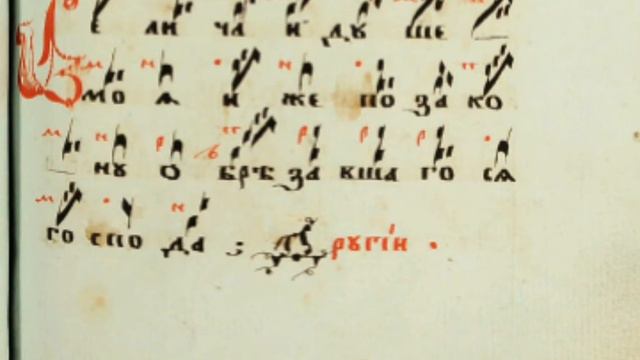 Ве ли ча и дꙋ ше
мо ѧ и же по за ко
нꙋ о брѣ за вша го сѧ
го спо да ; Дрꙋгїи ·